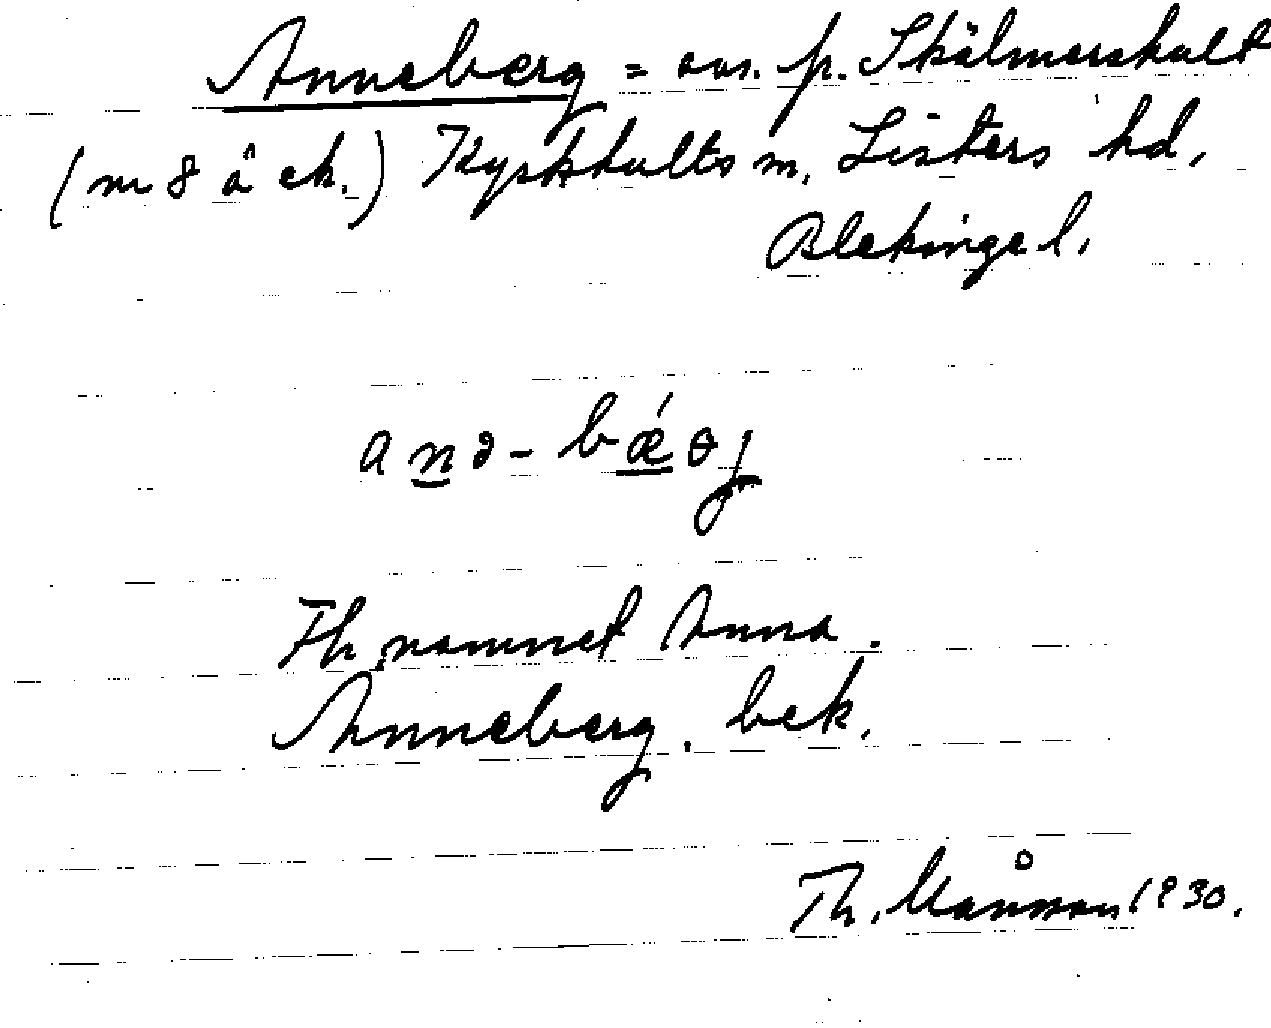 Anneberg = avs. p. Skälmershult
(nr 8 å ek.) Kyrkhults sn, Listers hd,
Blekinge l.
anə-bǽrj
F.h. namnet Anna.
Anneberg. bek.
Th. Månsson 1930.